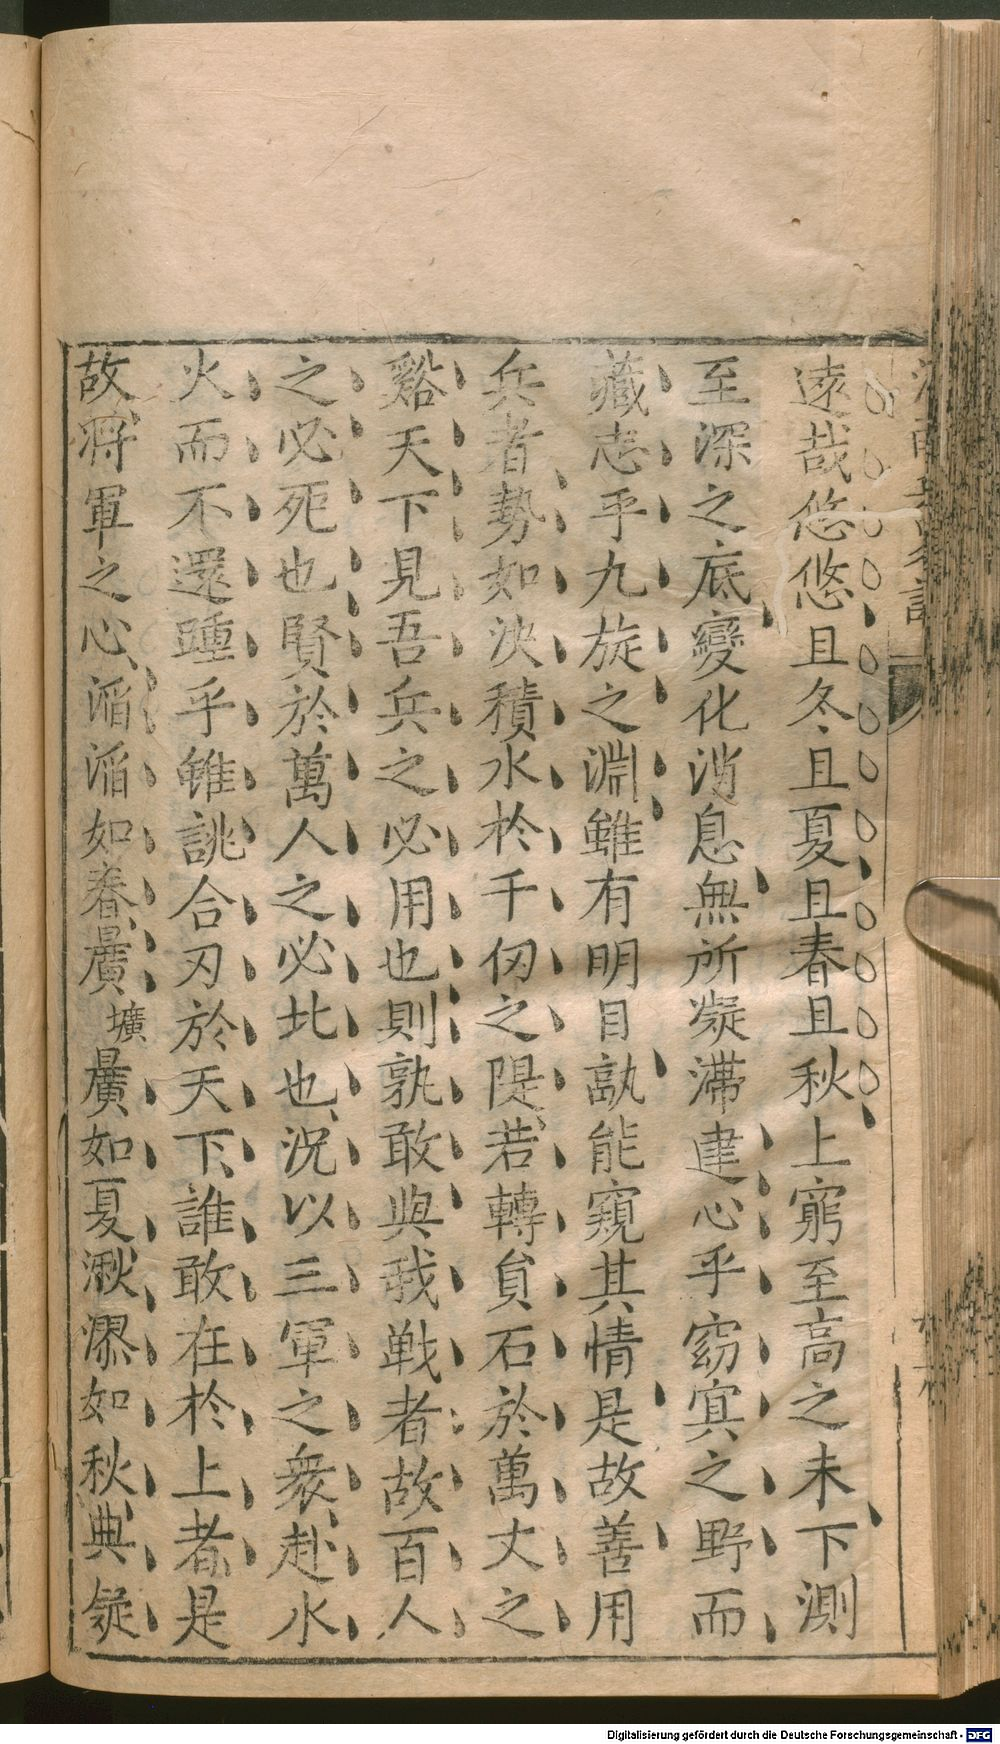 遠哉悠悠且冬且夏且春且秋上窮至高之未下測
至深之底變化消息無所凝滯建心乎窈冥之野而
藏志乎九旋之淵雖有明目孰能窺其情是故善用
兵者勢如決積水於千仞之隄若轉員石於萬丈之
谿天下見吾兵之必用也則孰敢與我戰者故百人
之必死也賢於萬人之必北也況以三軍之衆赴水
火而不還踵乎雖誂合刃於天下誰敢在於上者是
故將軍之心滔滔如春曠壙曠如夏湫漻如秋典凝
Digitalisierung gefördert durch die Deutsche Forschungsgemeinschaft - DFG